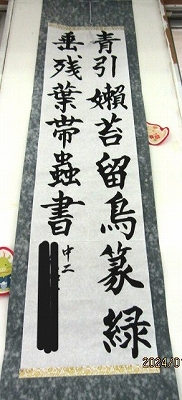 青引嬾苔留鳥篆緑
垂残葉帯蟲書
中二